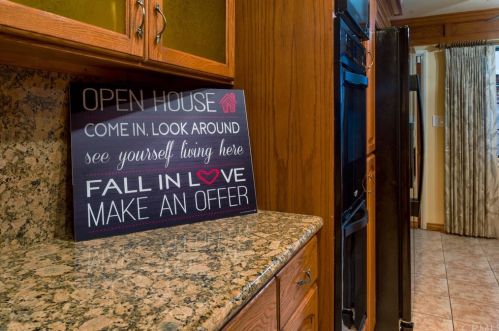 OPEN HOUSE
COME IN, LOOK AROUND
see yourself living here
FALL IN LOVE
MAKE AN OFFER